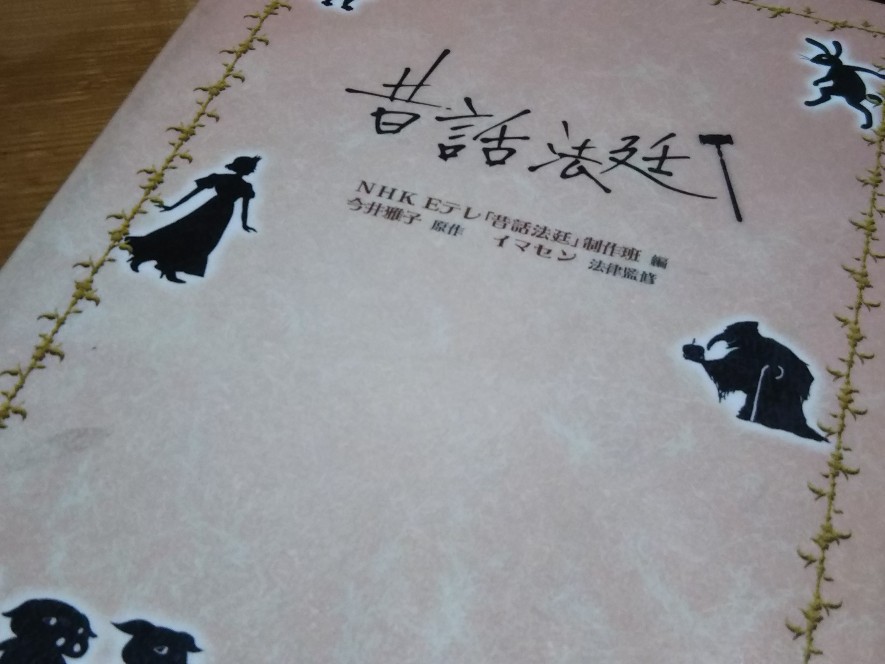 昔話法廷
NHK Eテレ「昔話法廷」制作班 編
今井雅子 原作 イマセン 法律監修